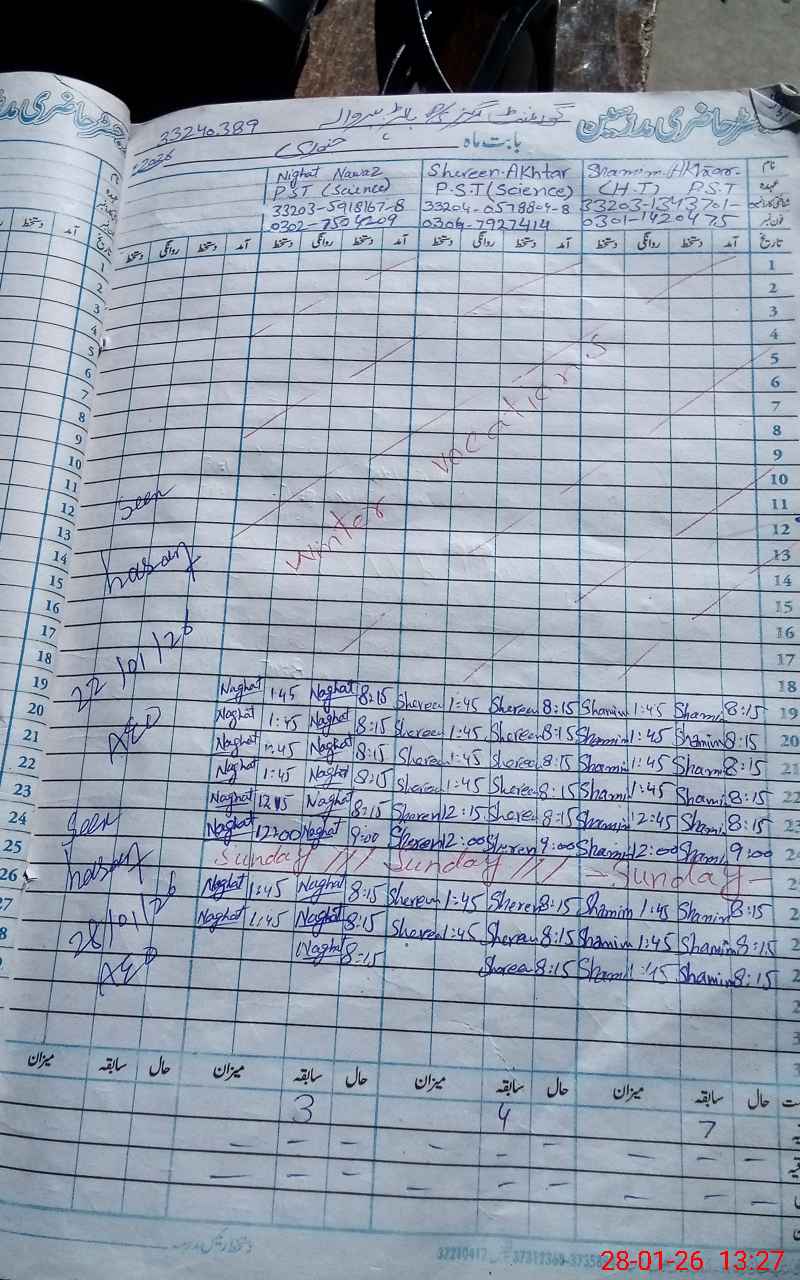 رجسٹر حاضری مدرسین
33240389
2026
جنوری
بابت ماہ
نام
Shamim Akhtar
Shereen Akhtar
Nighat Nawaz
عہدہ
(H.T) P.S.T
P.S.T (Science)
PST (Science)
33203-1343701-
33204-0578804-8
33203-5918167-8
0301-1420475
0306-7927414
0302-7504209
تاریخ آمد روانگی دستخط آمد دستخط روانگی دستخط آمد دستخط روانگی دستخط آمد دستخط روانگی دستخط
1
2
3
4
5
6
7
8
9
10
11
12
13
14
15
16
17
18
Winter vocations
Seen
hasan
22/01/26
AEO
19 Naghat 1:45 Naghat 8:15 Sheree 1:45 Sheree 8:15 Shamim 1:45 Shamim 8:15
20 Naghat 1:45 Naghat 8:15 Sheree 1:45 Sheree 8:15 Shamim 1:45 Shamim 8:15
21 Naghat 1:45 Naghat 8:15 Sheree 1:45 Sheree 8:15 Sham 1:45 Sham 8:15
22 Naghat 1:45 Naghat 8:15 Sheree 1:45 Sheree 8:15 Sham 1:45 Sham 8:15
23 Naghat 12:15 Naghat 8:15 Sheren 12:15 Sheree 8:15 Shamim 12:45 Sham 8:15
24 Naghat 12:00 Naghat 9:00 Sheren 12:00 Sheren 9:00 Sham 12:00 Sham 9:00
Sunday /// Sunday /// - Sunday -
Naghat 1:45 Naghat 8:15 Sheree 1:45 Sheree 8:15 Shamin 1:45 Shamin 8:15
Naghat 1:45 Naghat 8:15 Sheree 1:45 Sheree 8:15 Shamim 1:45 Shamim 8:15
Naghat 8:15 Sheree 8:15 Sham 1:45 Shamim 8:15
Seen
hasan
28/01/26
AEO
حال سابقہ میزان حال سابقہ میزان حال سابقہ میزان حال سابقہ میزان
7 4 3
28-01-26 13:27